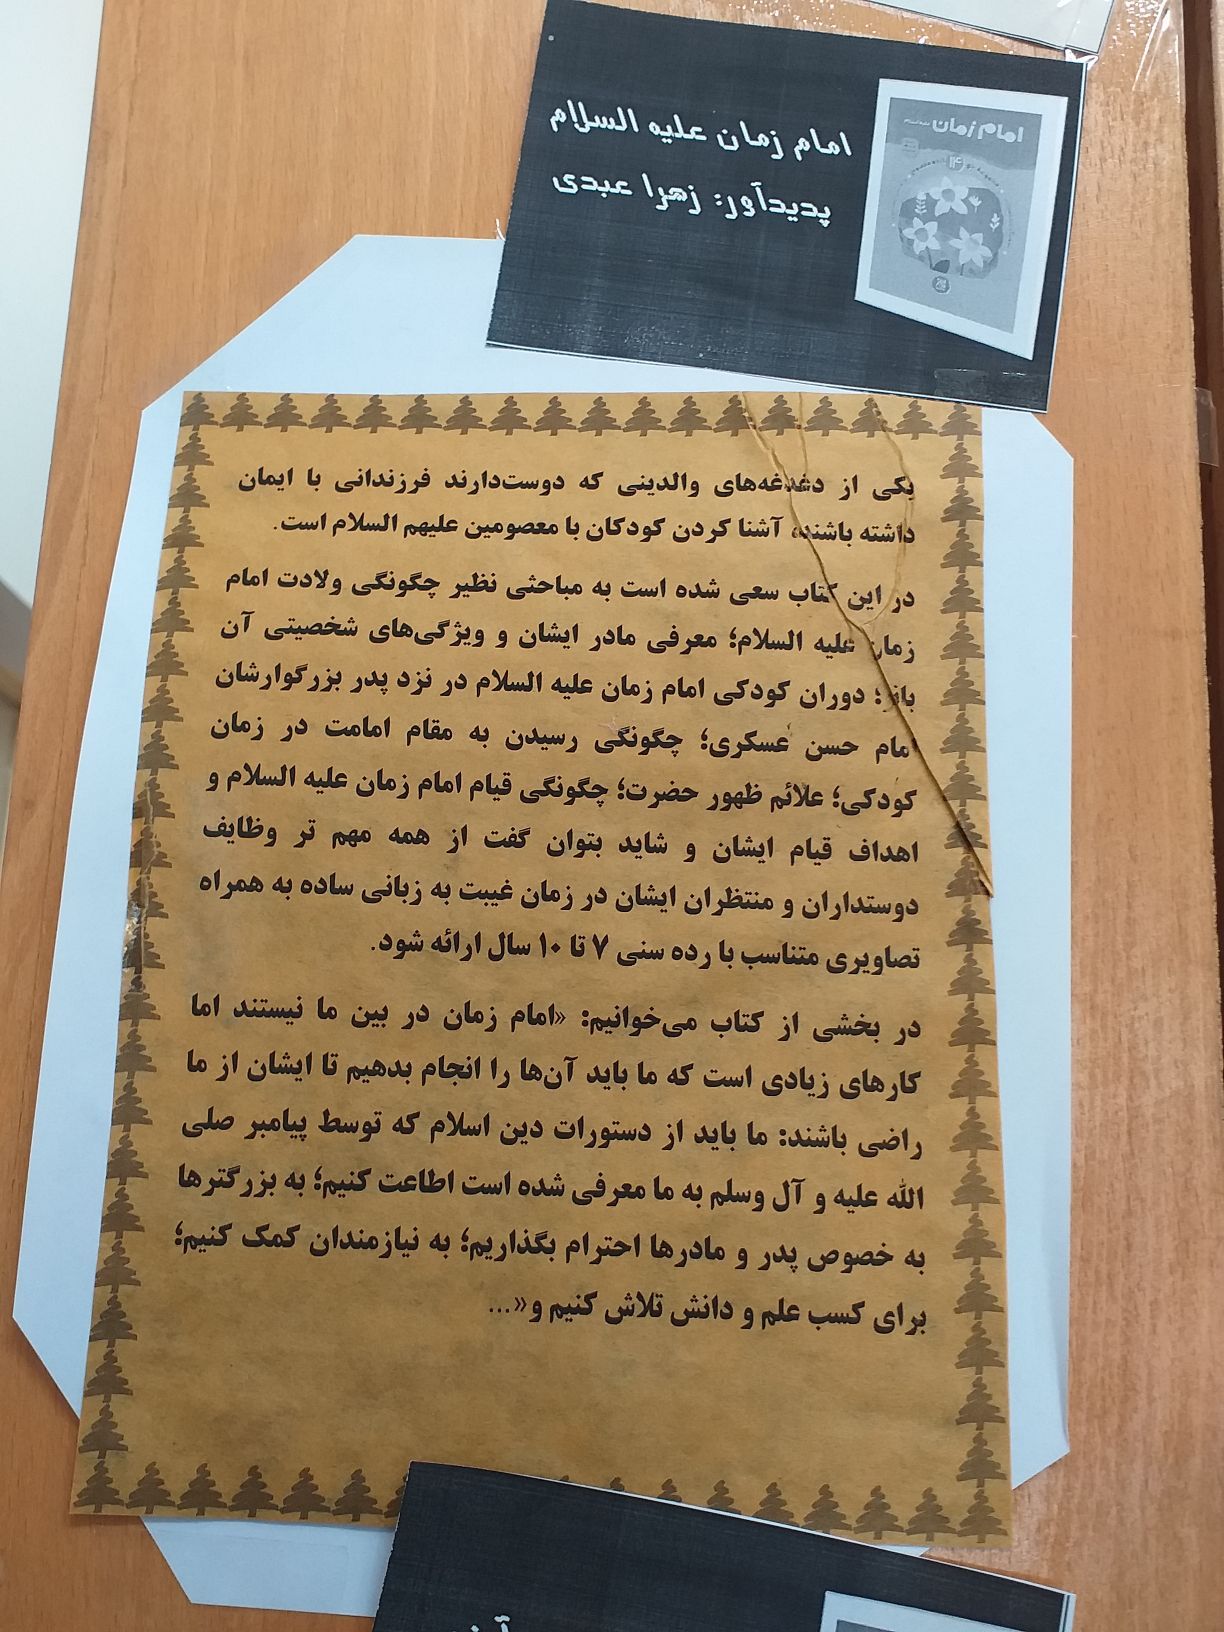 امام زمان علیه السلام
پدیدآور: زهرا عبدی
امام زمان
یکی از دغدغه‌های والدینی که دوست‌دارند فرزندانی با ایمان
داشته باشند، آشنا کردن کودکان با معصومین علیهم السلام است.
در این کتاب سعی شده است به مباحثی نظیر چگونگی ولادت امام
زمان علیه السلام؛ معرفی مادر ایشان و ویژگی‌های شخصیتی آن
بانو؛ دوران کودکی امام زمان علیه السلام در نزد پدر بزرگوارشان
امام حسن عسکری؛ چگونگی رسیدن به مقام امامت در زمان
کودکی؛ علائم ظهور حضرت؛ چگونگی قیام امام زمان علیه السلام و
اهداف قیام ایشان و شاید بتوان گفت از همه مهم تر وظایف
دوستداران و منتظران ایشان در زمان غیبت به زبانی ساده به همراه
تصاویری متناسب با رده سنی ۷ تا ۱۰ سال ارائه شود.
در بخشی از کتاب می‌خوانیم: «امام زمان در بین ما نیستند اما
کارهای زیادی است که ما باید آن‌ها را انجام بدهیم تا ایشان از ما
راضی باشند: ما باید از دستورات دین اسلام که توسط پیامبر صلی
الله علیه و آل وسلم به ما معرفی شده است اطاعت کنیم؛ به بزرگترها
به خصوص پدر و مادرها احترام بگذاریم؛ به نیازمندان کمک کنیم؛
برای کسب علم و دانش تلاش کنیم و«...